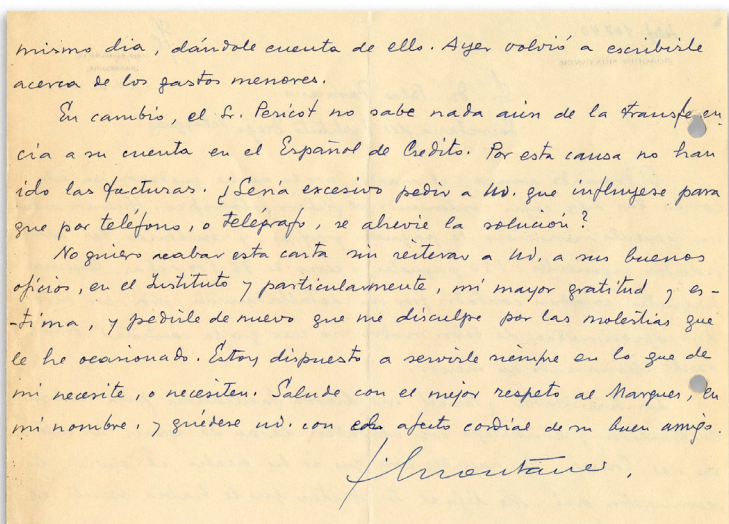 mismo dia, dándole cuenta de ello. Ayer volvió a escribirle
acerca de los gastos menores.
En cambio, el Sr. Pericot no sabe nada aún de la transferen-
cia a su cuenta en el Español de Credito. Por esta causa no han
ido las facturas. ¿Seria excesivo pedir a Ud. que influyese para
que por teléfono, o telégrafo, se abrevie la solución?
No quiero acabar esta carta sin reiterar a Ud. a sus buenos
oficios, en el Instituto y particularmente, mi mayor gratitud y es-
-tima, y pedirle de nuevo que me disculpe por las molestias que
le he ocasionado. Estoy dispuesto a servirle siempre en lo que de
mi necesite, o necesiten. Salude con el mejor respeto al Marques, en
mi nombre, y quédese Ud. con afecto cordial de su buen amigo.